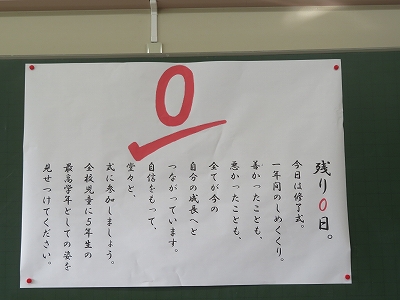 0
残り0日。
今日は修了式。
一年間のしめくくり。
善かったことも、
悪かったことも、
全てが今の
自分の成長へと
つながっています。
自信をもって、
堂々と、
式に参加しましょう。
全校児童に5年生の
最高学年としての姿を
見せつけてください。